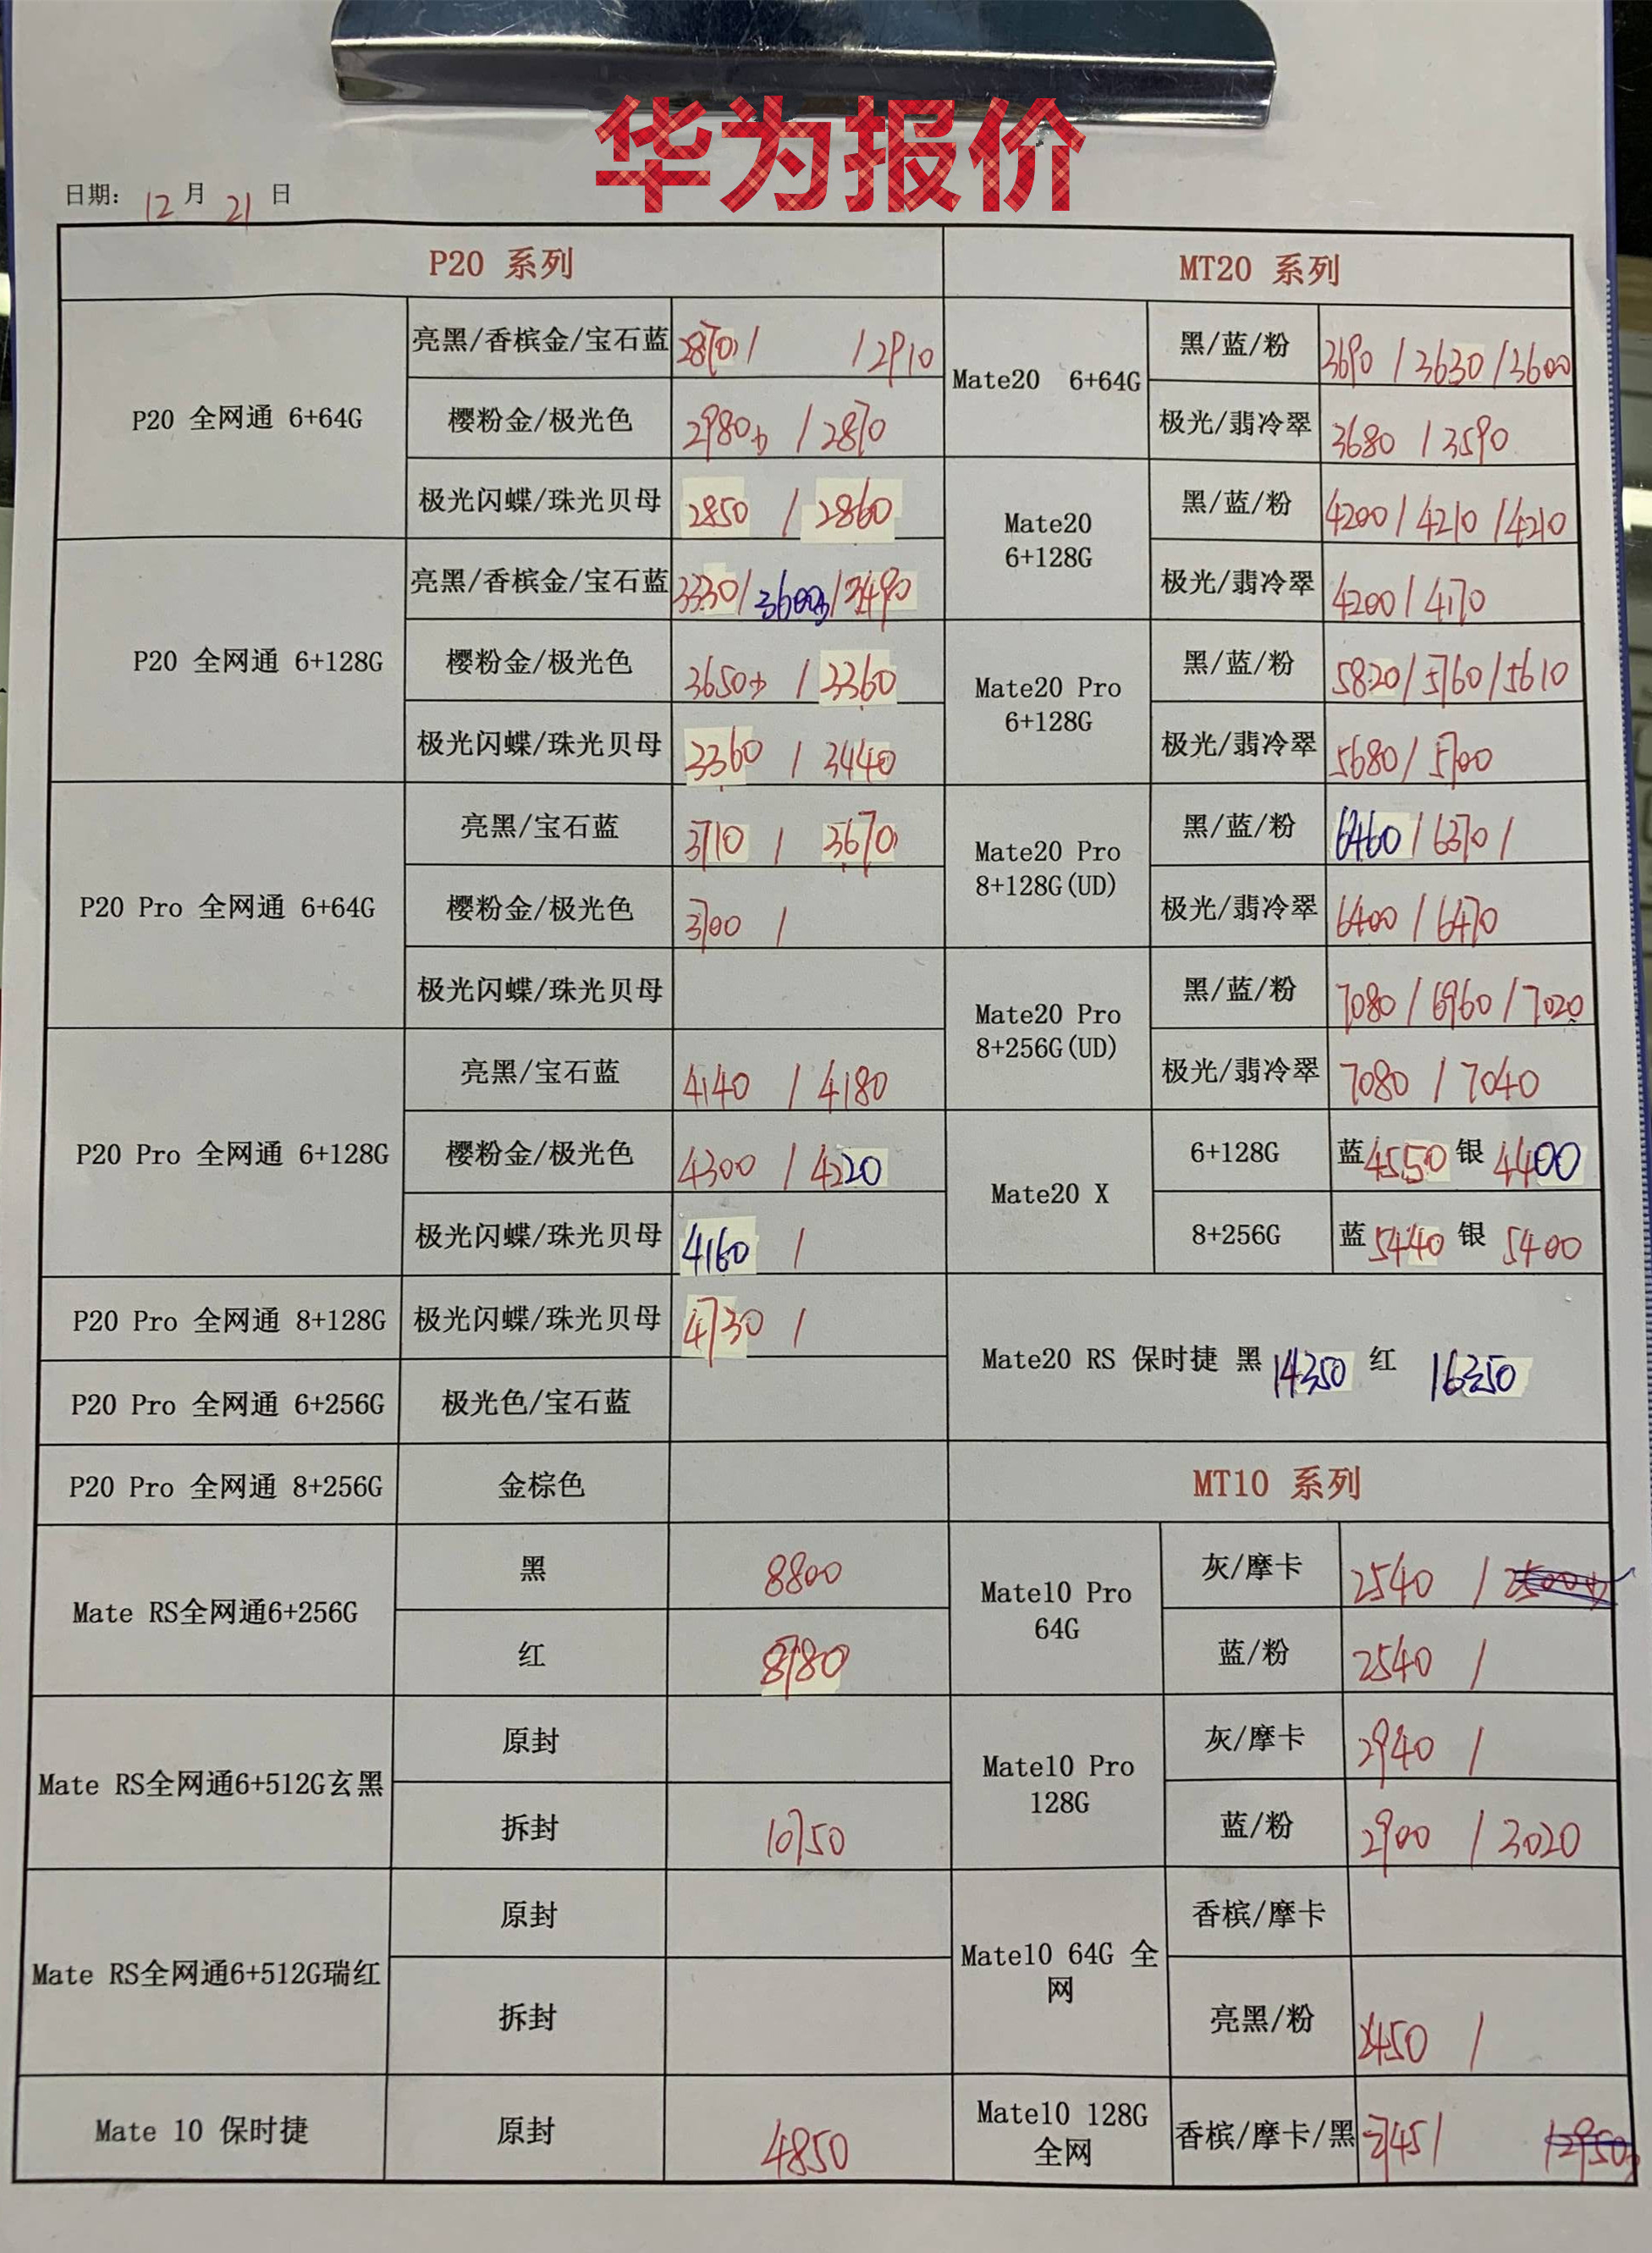 华为报价
日期： 12 月 21 日
P20 系列
P20 全网通 6+64G
亮黑/香槟金/宝石蓝 2870 / / 2910
樱粉金/极光色 2980 / 2870
极光闪蝶/珠光贝母 2850 / 2860
P20 全网通 6+128G
亮黑/香槟金/宝石蓝 3330 / 3600 / 3490
樱粉金/极光色 3650 / 3360
极光闪蝶/珠光贝母 3360 / 3440
P20 Pro 全网通 6+64G
亮黑/宝石蓝 3710 / 3670
樱粉金/极光色 3700 /
极光闪蝶/珠光贝母
P20 Pro 全网通 6+128G
亮黑/宝石蓝 4140 / 4180
樱粉金/极光色 4300 / 4220
极光闪蝶/珠光贝母 4160 /
P20 Pro 全网通 8+128G 极光闪蝶/珠光贝母 4730 /
P20 Pro 全网通 6+256G 极光色/宝石蓝
P20 Pro 全网通 8+256G 金棕色
Mate RS全网通6+256G
黑 8800
红 8780
Mate RS全网通6+512G玄黑
原封
拆封 10750
Mate RS全网通6+512G瑞红
原封
拆封
Mate 10 保时捷 原封 4850
MT20 系列
Mate20 6+64G
黑/蓝/粉 3690 / 3630 / 3600
极光/翡冷翠 3680 / 3590
Mate20
6+128G
黑/蓝/粉 4200 / 4210 / 4210
极光/翡冷翠 4200 / 4170
Mate20 Pro
6+128G
黑/蓝/粉 5820 / 5760 / 5610
极光/翡冷翠 5680 / 5700
Mate20 Pro
8+128G(UD)
黑/蓝/粉 6460 / 6370 /
极光/翡冷翠 6400 / 6470
Mate20 Pro
8+256G(UD)
黑/蓝/粉 7080 / 6960 / 7020
极光/翡冷翠 7080 / 7040
Mate20 X
6+128G 蓝 4550 银 4400
8+256G 蓝 5440 银 5400
Mate20 RS 保时捷 黑 14350 红 16350
MT10 系列
Mate10 Pro
64G
灰/摩卡 2540 /
蓝/粉 2540 /
Mate10 Pro
128G
灰/摩卡 2940 /
蓝/粉 2900 / 3020
Mate10 64G 全
网
香槟/摩卡
亮黑/粉 2450 /
Mate10 128G
全网
香槟/摩卡/黑